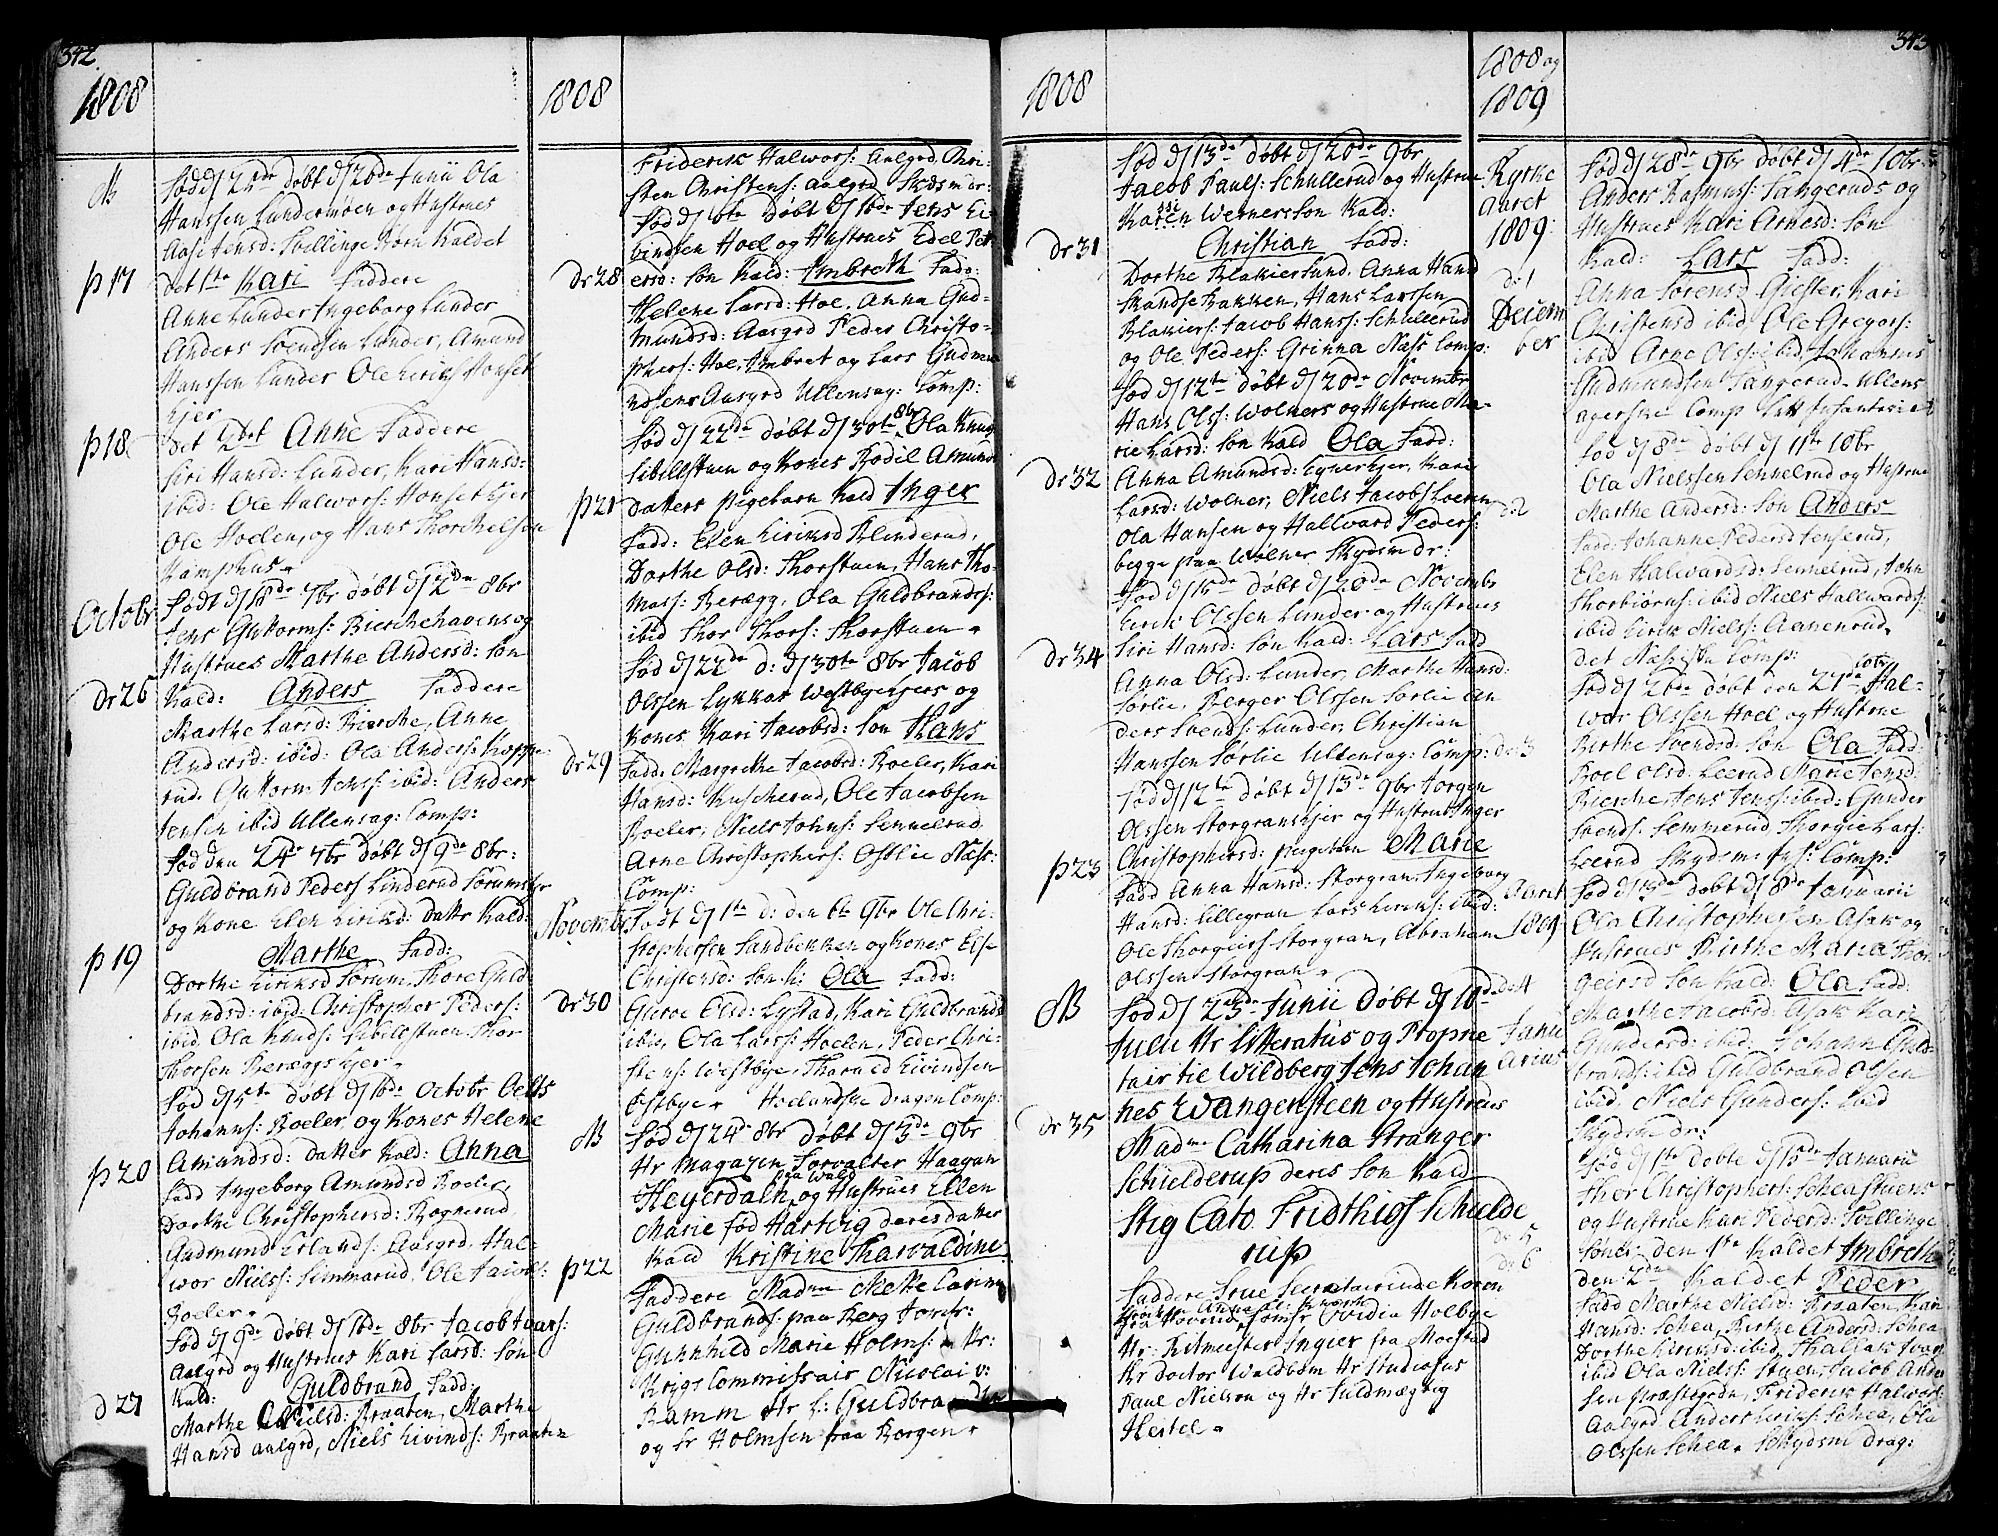 342.
1808
NB
Fød d 24de døbt d 26de Junii Ola
Hanssen Lundermoen og Hustrues
Aase Jensd: Tvillinge Børn Kaldet
p 17
det 1te Kari Faddere
Anne Lunder Ingeborg Lunder
Anders Svendsen Lunder, Amund
Hanssen Lunder Ole Eriks Honset
Ejer
p 18
det 2det Anne Faddere
Siri Hansd: Lunder, Kari Hansd:
ibid: Ole Halwors: Honset Ejer
Ole Hoelen, og Hans Thorchelsen
Kamphus.
Octobr
Født d 18de 7br døbt d 2den 8br
Jens Guttorms: Bierchehavens og
Hustrues Marthe Andersd: Søn
Dr 26
Kald: Anders Faddere
Marthe Larsd: Bierche, Anne
Andersd: ibid: Ola Anders: Koppe
rud. Guttorm Jens: ibid: Anders
Jensen ibid Ullensag: Comp:
Fød den 24de 7br døbt d 9de 8br:
Guldbrand Peders Linderud Sørumsejer
og Kone Elen Eriksd: datter Kald:
p 19
Marthe Fadd:
Dorthe Eriksd Sørum, Thore Guld
brandsd: ibid: Christopher Peders:
ibid. Ola Knuds: Sibilstuen Thor
Thorsen Berægg Ejer.
Fød d 5te døbt d 16de Octobr Oelts
Johanns: Boeler og Kones Helene
p 20
Amundsd: datter Kald: Anna
Fadd Ingeborg Amundsd Boeler,
Dorthe Christophersd: Rognerud,
Gudmund Erlands: Aasgrd. Hal-
wor Niels: Simmarud. Ole Jacobs:
Boeler.
Fød d 9de døbt d 16de 8br Jacob Ivars:
Aalgrd og Hustrues Kari Larsd: Søn
d 27
Kald: Guldbrand Fadd:
Marthe Nielsd: Braaten, Marthe
Hansd Aalgrd, Niels Eivinds: Braaten
1808
Friderik Halwors: Aalgrd, Chri-
sten Christens: Aalgrd Skedsm dr:
Fød d 6te Døbt d 16de Jens Ei
vindsen Hoel og Hustrues Edel Pet
Dr 28
ersd: Søn Kald: Imbreth Fadd:
Helene Larsd: Hoe. Anna Gud-
mundsd: Aasgrd Peder Christo-
phers: Hoe, Imbret og Lars Gudmu
ndsens Aasgrd Ullensag: Comp:
Fød d 22de døbt d 30te 8br Ola Knuds
Sibillstuen og Kones Bodil Amunds
p 21
datters pigebarn Kald Inger
Fadd: Elen Eiriksd Blinderud,
Dorthe Olsd: Thorstuen, Hans Tho-
mass: Berægg, Ola Guldbrands:
ibid Thor Thors: Thorstuen.
Fød d 22de d: d 30te 8br Jacob
Olssen Lykkas Westbyeejers og
Kones Kari Jacobsd: Søn Hans
Dr 29
Fadd: Margrethe Jacobsd: Boeler, Kari
Hansd: Kuscherud, Ole Jacobsen
Boeler, Niels Johns: Sennelrud
Arne Christophers: Ostlie Næss:
Comp:
Novembr
Født d 1te d: den 6te 9br Ole Chri-
stophersen Sandbekken og Kones Else
Christensd: Søn K: Ola Fadd:
Dr 30
Guroe Elsd: Lystad, Kari Guldbrands
ibid, Ola Larss: Hoelen, Peder Chri-
stens: Westbye, Tharald Eivindsen
Østbye. Hoelandske Dragon Comp:
NB
Fød d 24de 8br døbt d 3de 9br
Hr Magazin Forvalter Haagan
Heyerdahl paa Wald og Hustrues Ellen
Marie fød Harbitz deres datter
p 22
Kald Kristine Tharvaldine
Faddere Madme Mette Carine
Guldbrands: paa Berg Jomfr:
Gunhild Marie Holms: Hr:
Krigs Commissair Nicolai v:
Ramm Hr f: Guldbra
og Hr Holmsen paa Borgen.
1808
Fød d 13de døbt d 20de 9br
Jacob Pauls: Schullerud og Hustrue
Karen Wernersson Kald:
Dr 31
Christian Fadd:
Dorthe Blakierlund, Anna Hansd
Skandse Bakken, Hans Larssen
Blakiers: Jacob Hanss: Schullerud
og Ole Peders: Grinna Næss Comp:
Fød d 12te døbt d 20de Novembr
Hans Olss: Wolners og Hustrue Ma-
rie Larsd: Søn Kald Ola Fadd:
Dr 32
Anna Amundsd: Ejner Ejer, Kari
Larsd: Wolner, Niels Jacobs Loeren
Ola Hansen og Hallvard Peders:
begge paa Wolner Skydsm dr:
Fød d 15de døbt d 20de Novembr
Erik Olssen Lunder og Hustrues
Dr 34
Siri Hansd: Søn Kald: Lars Fadd
Anna Olsd: Lunder, Marthe Hansd:
Sørlie, Berger Olssen Sørlie An
ders Svends: Lunder, Christian
Hanssen Sørlie Ullensag: Comp:
Fød d 12te døbt d 13de 9br Jorgen
Olssen Storgransejer og Hustrus Inger
p 23
Christophersd: pigebarn Marie
Fadd Anna Hansd: Storgran, Ingeborg
Hansd: Lillegran Lars Eriks: ibid:
Ole Thorgiers: Storgran, Abraham
Olssen Storgran.
NB
Fød d 23de Junii Døbt d 10de
Julii Hr Litteratus og Proprie
tair til Wildberg Jens Johan
Dr 35
nes Wangensteen og Hustrues
Madme Catharina Pranger
Schielderup deres Søn Kald
Stig Cato Fridthiof Schielde
rup
Faddere Frue Secretairinde Koren
fra Hovind Jomfr Ovidia Holbye
Hr: Ritmester Ingier fra Moestad
Hr Doctor Waldbom Hr Studiosus
Paul Nielsen og Hr Fuldmægtig
Hestel.
343
1808 og
1809
Kyrke
Aaret
1809.
d: 1
Decem
ber
Fød d 28de 9br døbt d 4de 10br:
Anders Rasmus: Tangeruds og
Hustrues Kari Arnesd: Søn
Kald: Lars Fadd:
Anna Sørensd Giester, Kari
Christensd ibid Ole Gregors:
ibid Arne Olss: ibid, Johannes
Gudmundsen Tangerud. Ullens
agerske Comp Lett Infanterie
Fød d 8de døbt d 11te 10br
Ola Nielssen Sennelrud og Hustrue
d: 2
Marthe Andersd: Søn Anders
Fadd: Johanne Pedersd Jenserud,
Elen Halvardsd: Sennelrud, John
Thorbiørns: ibid Niels Hallwards:
ibid Eirik Niels: Aanerud.
det Næsiske Comp:
Fød d 21de døbt den 27de 10br Hal-
wor Olssen Hoel og Hustrue
d: 3
Birthe Svendsd: Søn Ola Fadd:
Boel Olsd: Leerud Marie Jensd:
Bierche, Jens Jenss: ibid: Gunder
Svends: Semmerud, Thorgie Larss:
Leerud Skydsm: Inf: Comp:
Aaret
1809
Fød d 3de døbt d 8de Januarii
Ola Christophersen Asak og
Hustrues Birthe Maria Thor
d: 4
geirsd Søn Kald: Ola Fadd:
Janu
arius
Marthe Jacobsd: Asak Kari
Gundersd: ibid: Johann Guld-
brands: ibid Guldbrand Olssen
ibid: Niels Gunders: ibid
Skydsm dr:
Fød d 1te døbte d 15de Januarii
Ther Christophers: Scheastuens
og Hustrue Kari Pedersd: Tvillinge
dr 5
Søner den 1te Kaldet Imbreth
dr 6
den 2de Kaldet Peder
Fadd Marthe Nielsd: Braaten, Kari
Hansd: Schea, Birthe Andersd: Schea
Dorthe Eiriksd: ibid, Thalak Ivars
ibid Ola Niels: Stuen, Jacob Ander
sen Præstegrdn, Friderik Halwors:
Aalgrd Anders Eiriks: Schea, Ola
Olssen Schea. Schydsm Drag: